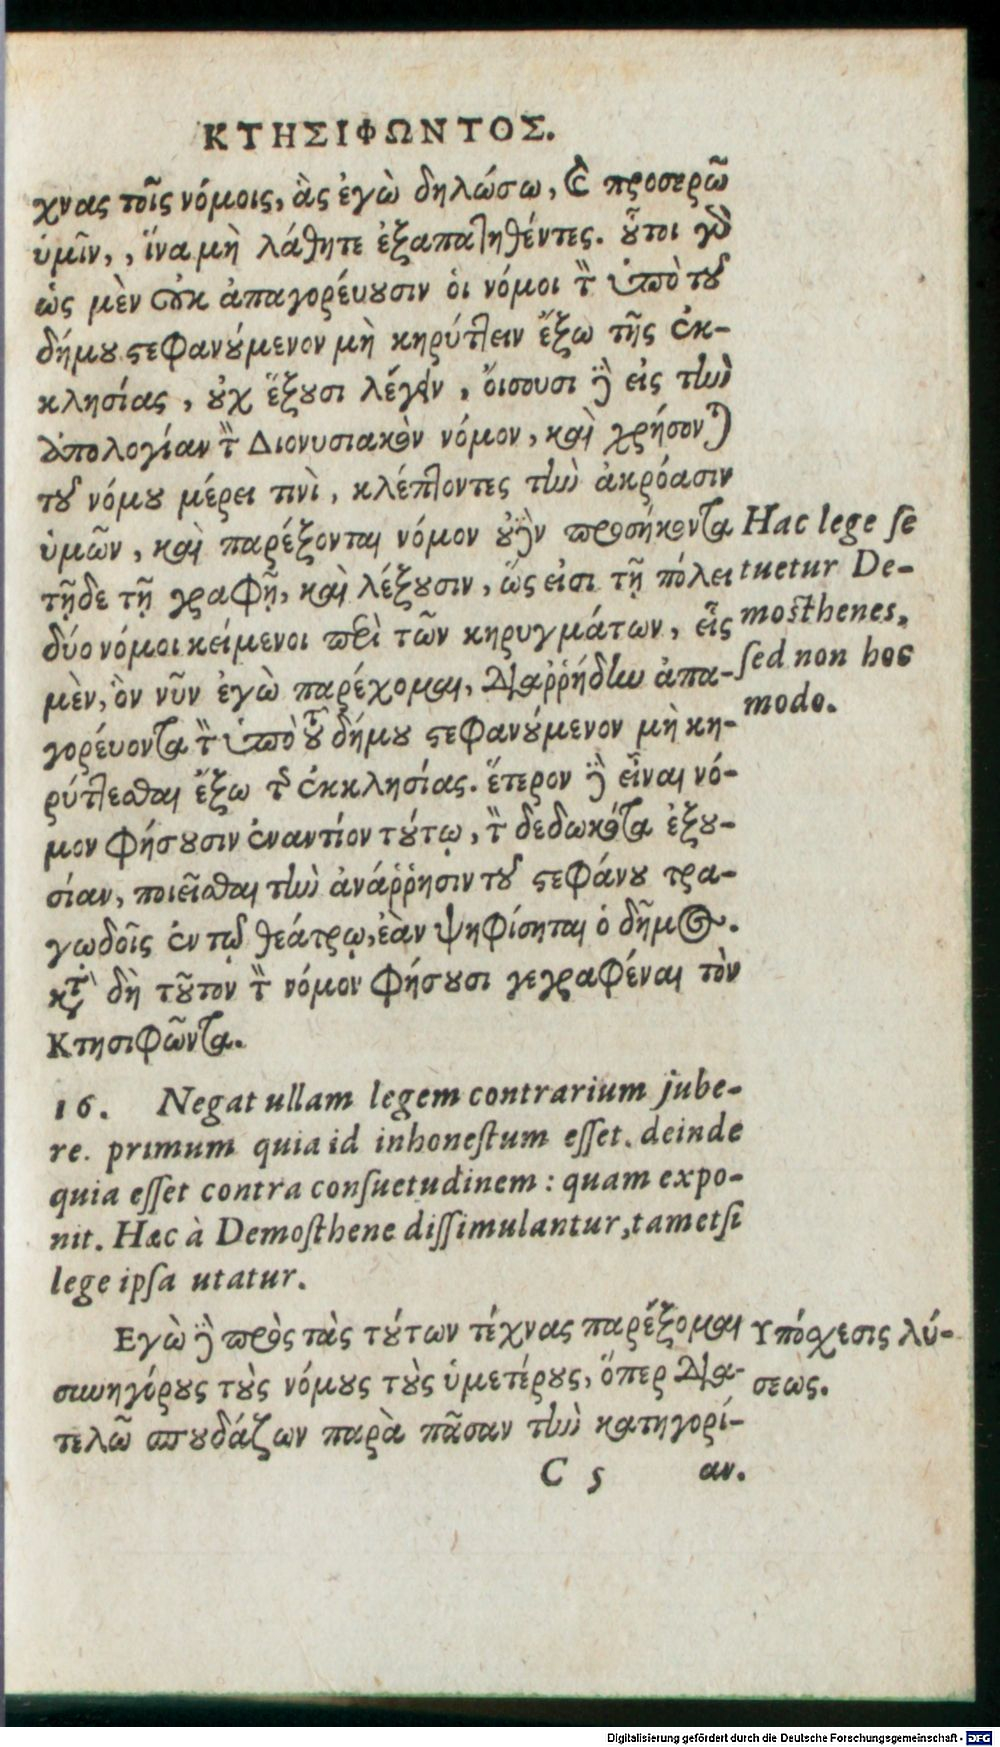 ΚΤΗΣΙΦΩΝΤΟΣ.
χνας τοῖς νόμοις, ἃς ἐγὼ δηλώσω, καὶ προσερῶ
ὑμῖν, , ἵνα μὴ λάθητε ἐξαπατηθέντες. οὗτοι γὸ
ὡς μὲν οὐκ ἀπαγορεύουσιν ὁι νόμοι τὸν ὑπὸ τοῦ
δήμου στεφανούμενον μὴ κηρύττειν ἔξω τῆς ἐκ-
κλησίας, οὐχ ἕξουσι λέγειν, ὄισουσι δὲ εἰς τὴν
ἀπολογίαν τὸν Διονυσιακὸν νόμον, καὶ χρήσονται
τοῦ νόμου μέρει τινὶ, κλέπτοντες τὴν ἀκρόασιν
ὑμῶν, καὶ παρέξονται νόμον οὐδὲν προσήκοντα
τῇδε τῇ γραφῇ, καὶ λέξουσιν, ὥς εἰσι τῇ πόλει
δύο νόμοι κείμενοι περὶ τῶν κηρυγμάτων, εἷς
μὲν, ὃν νῦν ἐγὼ παρέχομαι, διαῤῥήδην ἀπα-
γορέυοντα τὸν ὑπὸ τοῦ δήμου στεφανούμενον μὴ κη-
ρύττεσθαι ἔξω τῆς ἐκκλησίας. ἕτερον δὲ εἶναι νό-
μον φήσουσιν ἐναντίον τούτῳ, τὸν δεδωκότα ἐξου-
σίαν, ποιεῖσθαι τὴν ἀνάῤῥησιν τοῦ στεφάνου τρα-
γῳδοῖς ἐν τῷ θεάτρῳ, ἐὰν ψηφίσηται ὁ δῆμος.
κατὰ δὴ τοῦτον τὸν νόμον φήσουσι γεγραφέναι τὸν
Κτησιφῶντα.
Hac lege se
tuetur De-
mosthenes,
sed non hoc
modo.
16. Negat ullam legem contrarium jube-
re. primum quia id inhonestum esset. deinde
quia esset contra consuetudinem: quam expo-
nit. Hæc à Demosthene dissimulantur, tametsi
lege ipsa utatur.
Εγὼ δὲ πρὸς τὰς τούτων τέχνας παρέξομαι
συνηγόρους τοὺς νόμους τοὺς ὑμετέρους, ὅπερ δια-
τελῶ σπουδάζων παρὰ πᾶσαν τὴν κατηγορί-
Υπόσχεσις λύ-
σεως.
C 5 αν.
Digitalisierung gefördert durch die Deutsche Forschungsgemeinschaft - DFG